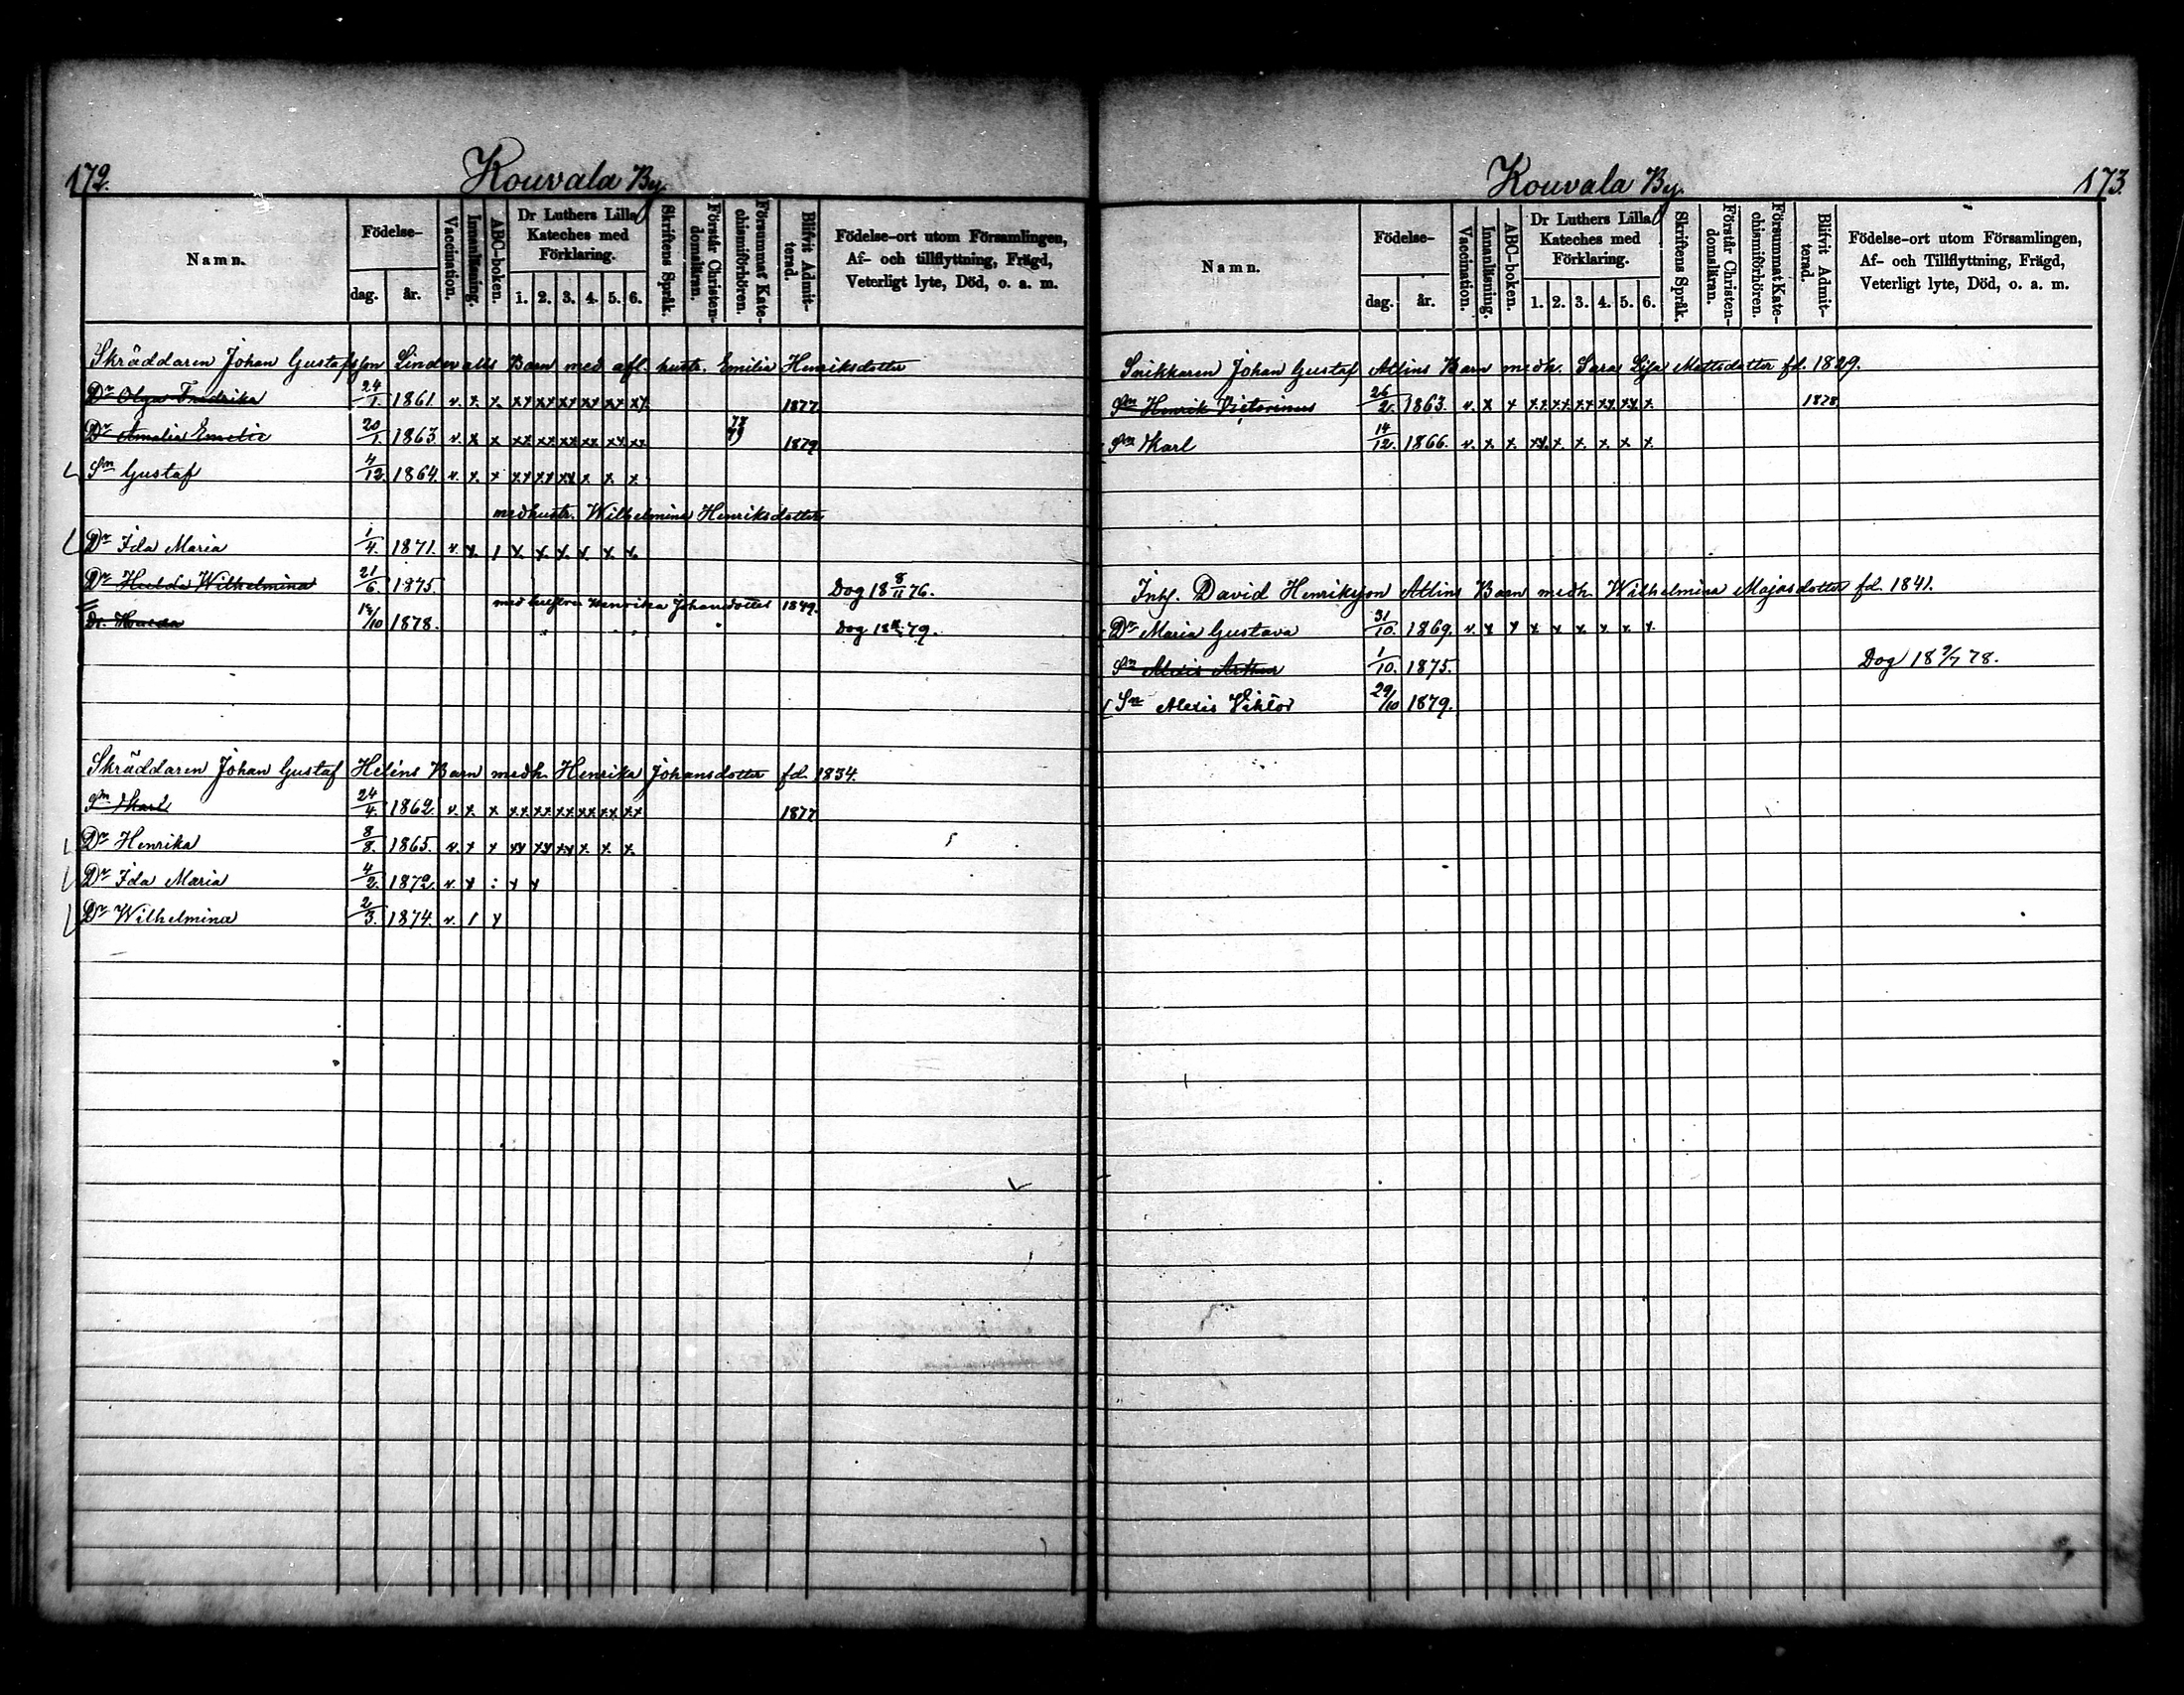 172.
Kouvala By.
Namn.
Födelse-
dag.
år.
Vaccination.
Innanläsning.
ABC-boken.
Dr Luthers Lilla
Kateches med
Förklaring.
1. 2. 3. 4. 5. 6.
Skriftens Språk.
Förstår Christen-
domsläran.
Försummat Kate-
chismiförhören.
Blifvit Admit-
terad.
Födelse-ort utom Församlingen,
Af- och tillflyttning, Frägd,
Veterligt lyte, Död, o. a. m.
Skräddaren Johan Gustafsson Lindevalls Barn med afl. hustr. Emilia Henriksdotter
Dr Olga Fredrika 24/1. 1861 v. x x. xx xx xx xx xx xx 1877
Dr Amalia Emelie 20/1. 1863 v. x x xx xx xx xx xx xx 78 79 1879
Sn Gustaf 4/12. 1864. v. x. x xx xx xx x x. x.
med hustr. Wilhelmina Henriksdotter
Dr Ida Maria 1/4. 1871. v. x. 1 x. x. x. x. x. x.
Dr Hulda Wilhelmina 21/6. 1875. Dog 18 8/11 76.
med hustru Henrika Johansdotter 1849.
Dr. 1878. Dog 79.
Skräddaren Johan Gustaf Heléns Barn med h. Henrika Johansdotter fd. 1834.
Sn Karl 24/4. 1862. v. x. x xx xx xx xx xx xx 1877
Dr Henrika 8/8. 1865. v. x x xx xx xx x. x. x.
Dr Ida Maria 4/2. 1872. v. x : x x
Dr Wilhelmina 2/3. 1874. v. 1 x
Kouvala By.
173.
Namn.
Födelse-
dag.
år.
Vaccination.
Innanläsning.
ABC-boken.
Dr Luthers Lilla
Kateches med
Förklaring.
1. 2. 3. 4. 5. 6.
Skriftens Språk.
Förstår Christen-
domsläran.
Försummat Kate-
chismiförhören.
Blifvit Admit-
terad.
Födelse-ort utom Församlingen,
Af- och Tillflyttning, Frägd,
Veterligt lyte, Död, o. a. m.
Johan Gustaf Atlins Barn med h. Sara Lisa Mattsdotter fd. 1829.
Sn Henrik Victorinus 26/2. 1863. v. x x xx xx xx xx xx x. 1878
Sn Karl 14/12. 1866. v. x. x. xx. x. x. x. x. x.
Inh. David Henriksson Atlins Barn med h. Wilhelmina Majasdotter fd. 1841.
Dr Maria Gustava 31/10. 1869. v. x x x. x. x. x. x. x.
Sn Alexis Arthur 1/10. 1875. Dog 18 9/7 78.
Sn Alexis Viktor 29/10 1879.